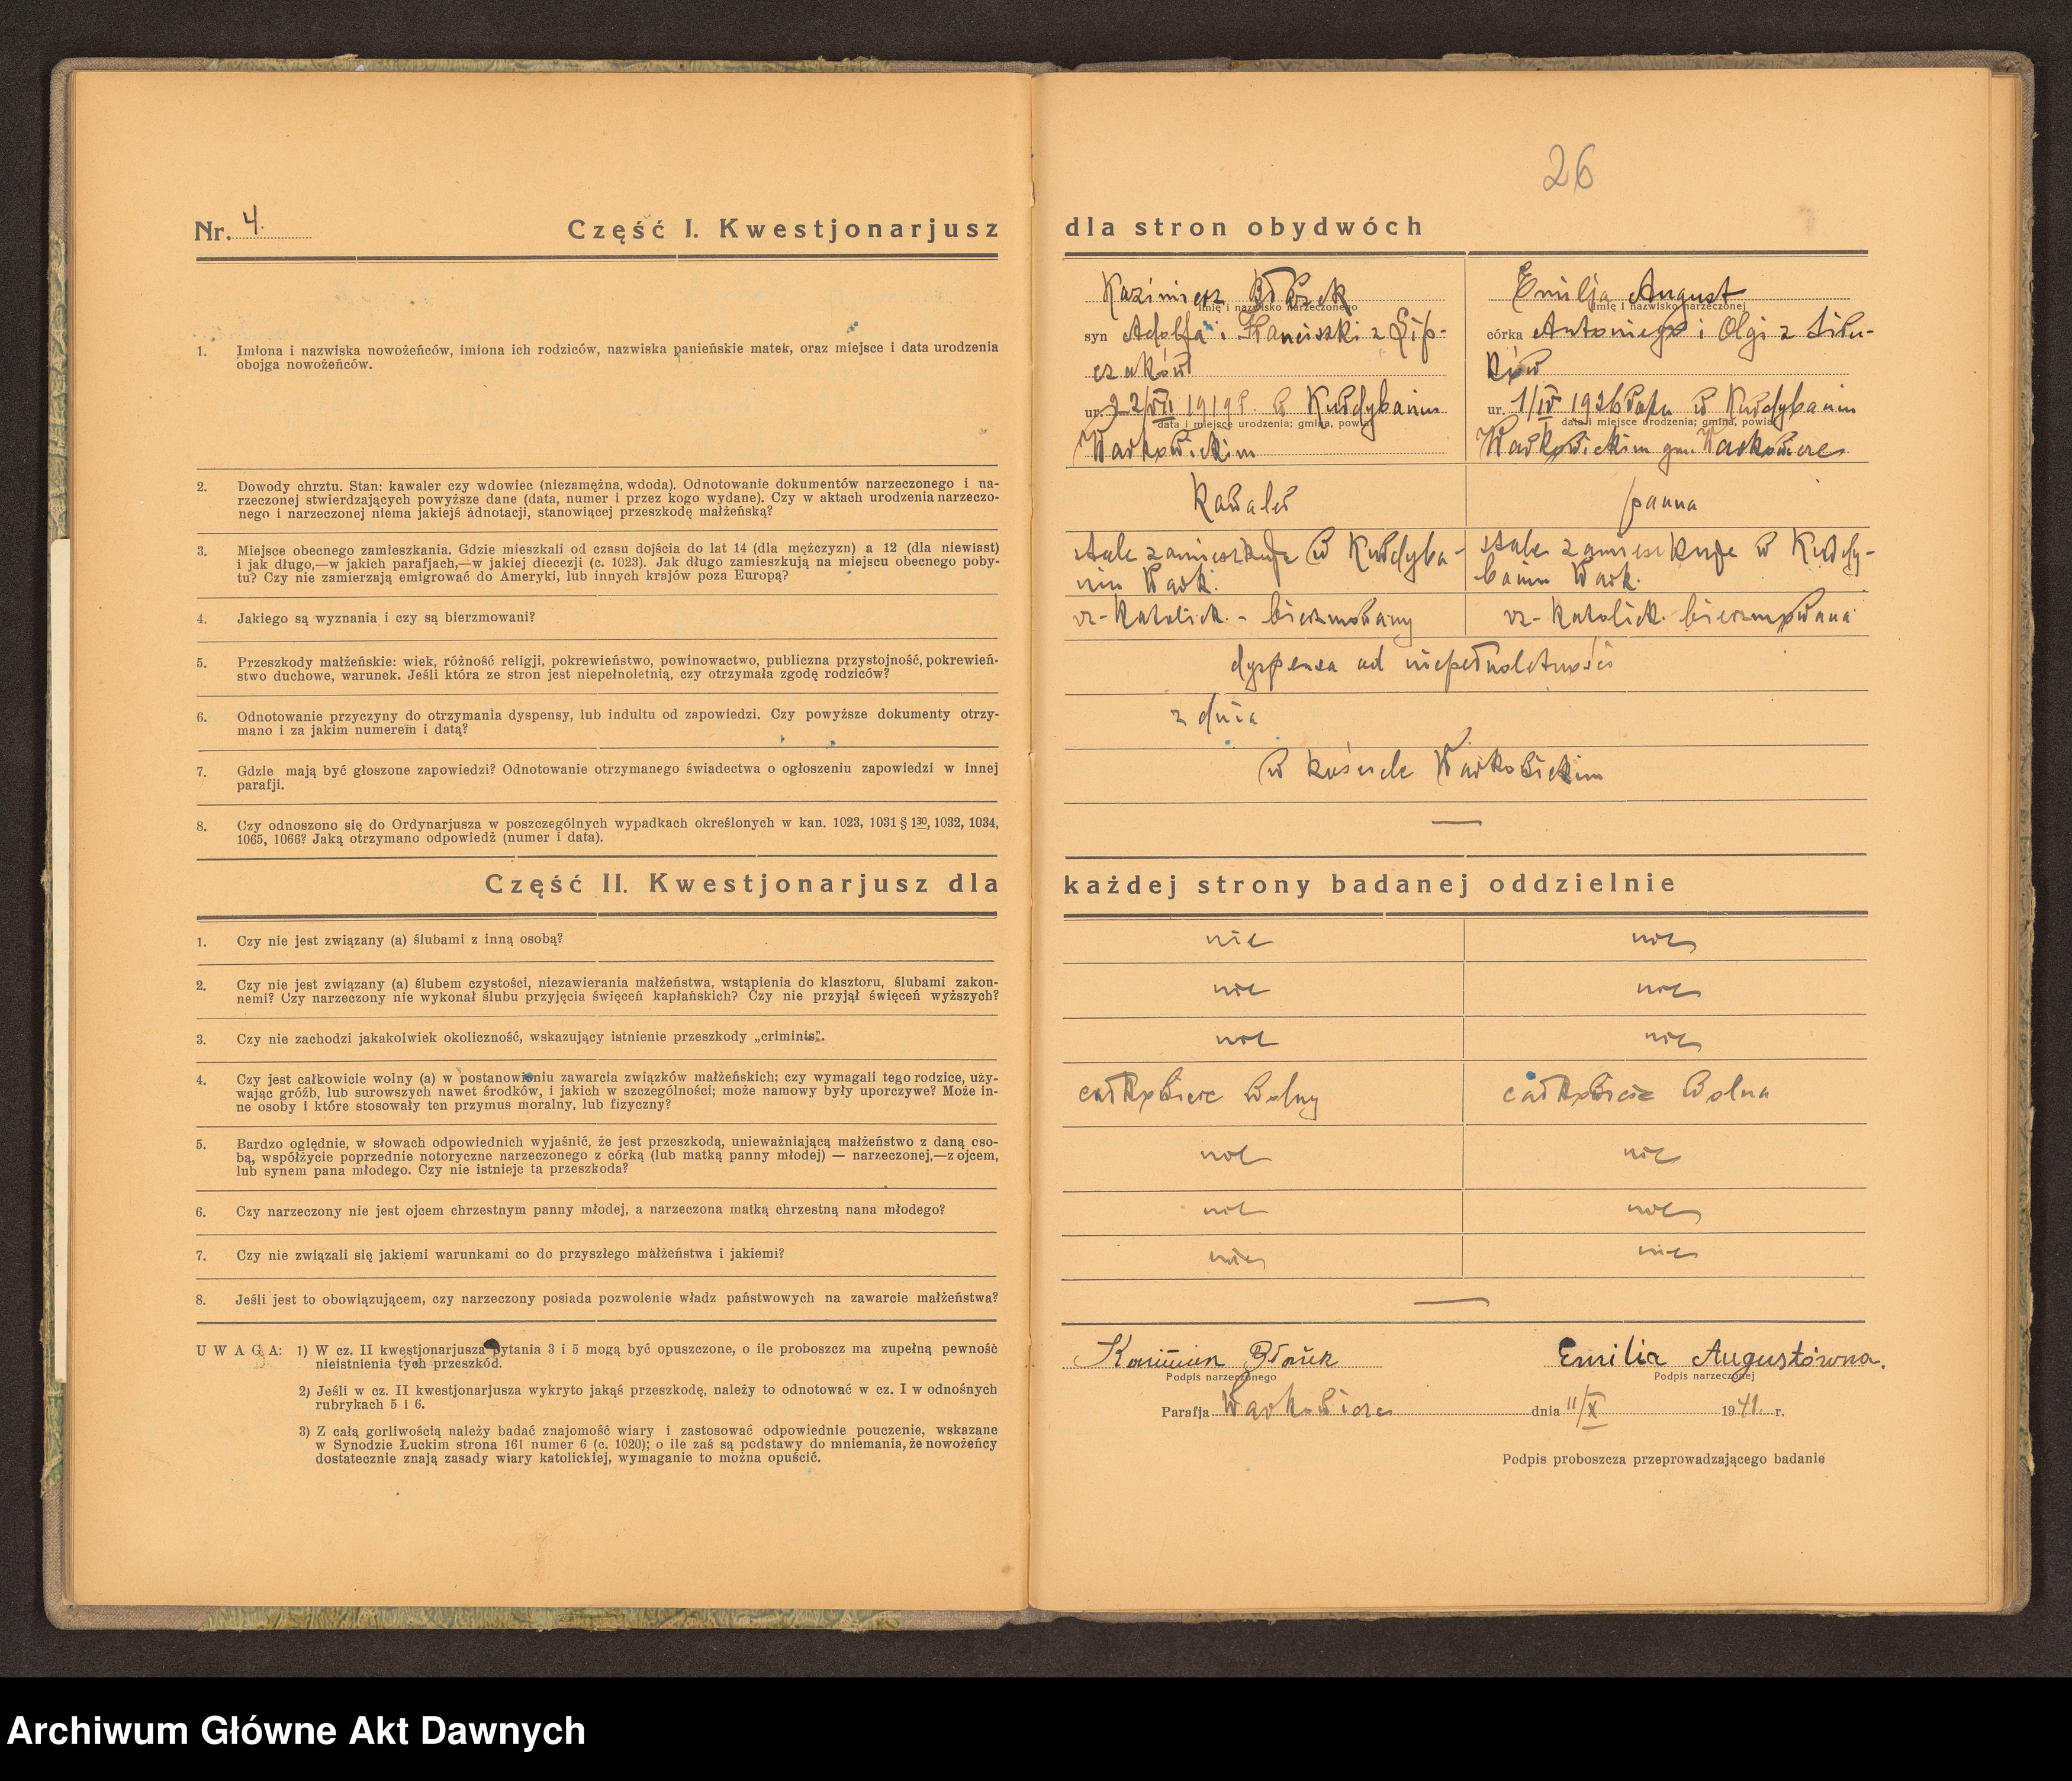 26
Nr. 4.
Część I. Kwestjonarjusz dla stron obydwóch
1. Imiona i nazwiska nowożeńców, imiona ich rodziców, nazwiska panieńskie matek, oraz miejsce i data urodzenia
obojga nowożeńców.
Kazimierz
imię i nazwisko narzeczonego
syn Adolfa i Franciszki z Lip-
czaków
ur. 22/VII 1919 r. w Kurdybaniu
data i miejsce urodzenia; gmina, powiat
Warkowickim
Emilja August
imię i nazwisko narzeczonej
córka Antoniego i Olgi z
ków
ur. 1/IV 1926 roku w Kurdybaniu
data i miejsce urodzenia; gmina, powiat
Warkowickim gm. Warkowicze
2. Dowody chrztu. Stan: kawaler czy wdowiec (niezamężna, wdoda). Odnotowanie dokumentów narzeczonego i na-
rzeczonej stwierdzających powyższe dane (data, numer i przez kogo wydane). Czy w aktach urodzenia narzeczo-
nego i narzeczonej niema jakiejś adnotacji, stanowiącej przeszkodę małżeńską?
Kawaler
panna
3. Miejsce obecnego zamieszkania. Gdzie mieszkali od czasu dojścia do lat 14 (dla mężczyzn) a 12 (dla niewiast)
i jak długo,—w jakich parafjach,—w jakiej diecezji (c. 1023). Jak długo zamieszkują na miejscu obecnego poby-
tu? Czy nie zamierzają emigrować do Ameryki, lub innych krajów poza Europą?
stale zamieszkuje w Kurdyba-
niu Wark.
stale zamieszkuje w Kurdy-
baniu Wark.
4. Jakiego są wyznania i czy są bierzmowani?
rz-katolick. - bierzmowany
rz-katolick. bierzmowana
5. Przeszkody małżeńskie: wiek, różność religji, pokrewieństwo, powinowactwo, publiczna przystojność, pokrewień-
stwo duchowe, warunek. Jeśli która ze stron jest niepełnoletnią, czy otrzymała zgodę rodziców?
dyspensa od niepełnoletności
6. Odnotowanie przyczyny do otrzymania dyspensy, lub indultu od zapowiedzi. Czy powyższe dokumenty otrzy-
mano i za jakim numerem i datą?
z dnia
7. Gdzie mają być głoszone zapowiedzi? Odnotowanie otrzymanego świadectwa o ogłoszeniu zapowiedzi w innej
parafji.
w kościele Warkowickim
8. Czy odnoszono się do Ordynarjusza w poszczególnych wypadkach określonych w kan. 1023, 1031 § 1³⁰, 1032, 1034,
1065, 1066? Jaką otrzymano odpowiedź (numer i data).
—
Część II. Kwestjonarjusz dla każdej strony badanej oddzielnie
1. Czy nie jest związany (a) ślubami z inną osobą?
nie
nie
2. Czy nie jest związany (a) ślubem czystości, niezawierania małżeństwa, wstąpienia do klasztoru, ślubami zakon-
nemi? Czy narzeczony nie wykonał ślubu przyjęcia święceń kapłańskich? Czy nie przyjął święceń wyższych?
nie
nie
3. Czy nie zachodzi jakakolwiek okoliczność, wskazujący istnienie przeszkody „criminis”.
nie
nie
4. Czy jest całkowicie wolny (a) w postanowieniu zawarcia związków małżeńskich; czy wymagali tego rodzice, uży-
wając gróźb, lub surowszych nawet środków, i jakich w szczególności; może namowy były uporczywe? Może in-
ne osoby i które stosowały ten przymus moralny, lub fizyczny?
całkowicie wolny
całkowicie wolna
5. Bardzo oględnie, w słowach odpowiednich wyjaśnić, że jest przeszkodą, unieważniającą małżeństwo z daną oso-
bą, współżycie poprzednie notoryczne narzeczonego z córką (lub matką panny młodej) — narzeczonej,—z ojcem,
lub synem pana młodego. Czy nie istnieje ta przeszkoda?
nie
nie
6. Czy narzeczony nie jest ojcem chrzestnym panny młodej, a narzeczona matką chrzestną nana młodego?
nie
nie
7. Czy nie związali się jakiemi warunkami co do przyszłego małżeństwa i jakiemi?
nie
nie
8. Jeśli jest to obowiązującem, czy narzeczony posiada pozwolenie władz państwowych na zawarcie małżeństwa?
—
UWAGA: 1) W cz. II kwestjonarjusza pytania 3 i 5 mogą być opuszczone, o ile proboszcz ma zupełną pewność
nieistnienia tych przeszkód.
2) Jeśli w cz. II kwestjonarjusza wykryto jakąś przeszkodę, należy to odnotować w cz. I w odnośnych
rubrykach 5 i 6.
3) Z całą gorliwością należy badać znajomość wiary i zastosować odpowiednie pouczenie, wskazane
w Synodzie Łuckim strona 161 numer 6 (c. 1020); o ile zaś są podstawy do mniemania, że nowożeńcy
dostatecznie znają zasady wiary katolickiej, wymaganie to można opuścić.
Podpis narzeczonego
Emilia Augustówna.
Podpis narzeczonej
Parafja Warkowicze dnia 11/X 1941. r.
Podpis proboszcza przeprowadzającego badanie
Archiwum Główne Akt Dawnych